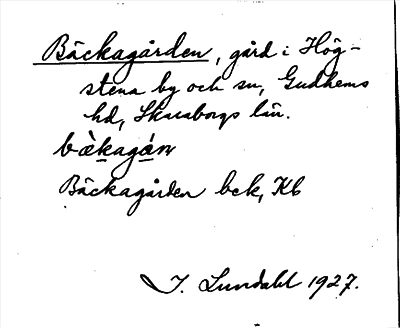 Bäckagården, gård i Hög-
stena by och sn, Gudhems
hd, Skaraborgs län.
bàkagán
Bäckagården bck, Kb
I. Lundahl 1927.